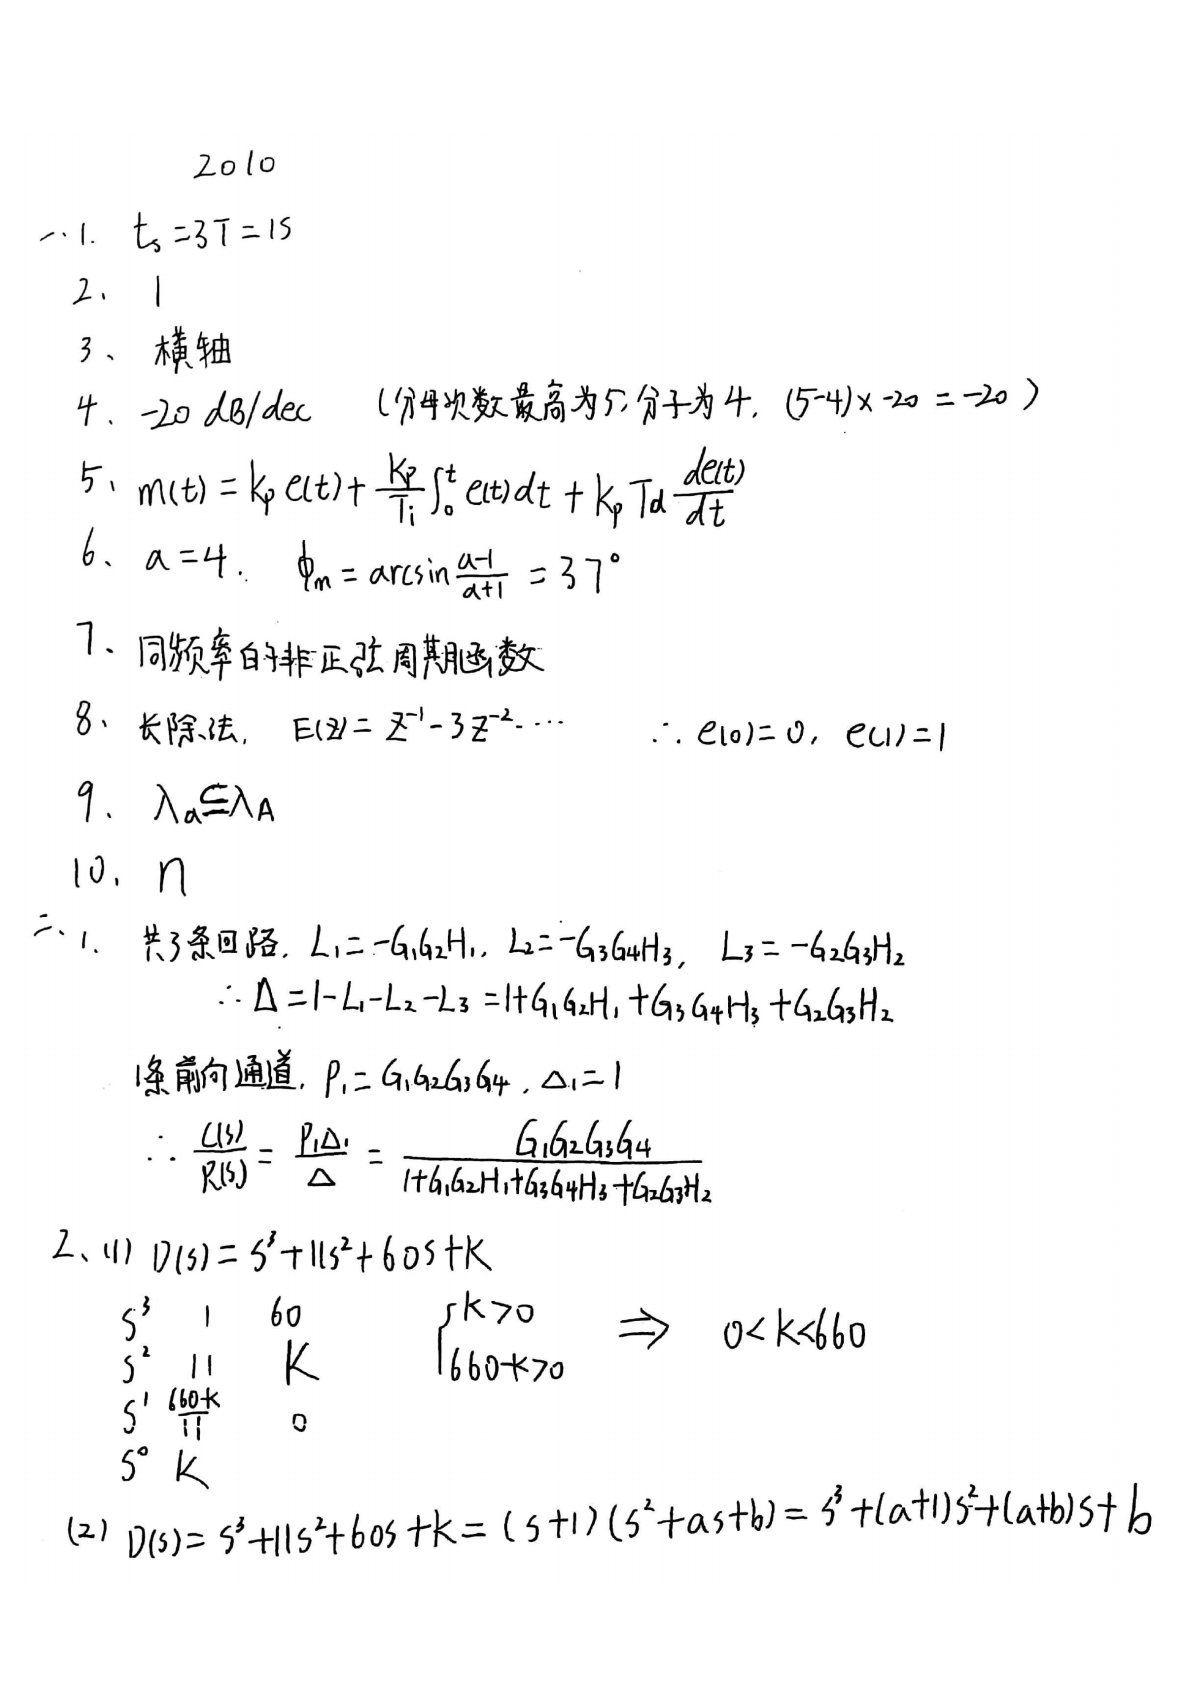 2010
一.1. ts=3T=1S
2、 1
3、 横轴
4、 -20 dB/dec (分母次数最高为5,分子为4, (5-4)×-20=-20)
5、 m(t)=kp e(t)+Kp/Ti ∫₀ᵗ e(t)dt+kp Td de(t)/dt
6、 a=4. ϕm=arcsin (a-1)/(a+1) =37°
7、 同频率的非正弦周期函数
8、 长除法, E(z)=Z⁻¹-3Z⁻²-… ∴e(0)=0, e(1)=1
9、 λa⊆λA
10、 n
二、1. 共3条回路, L₁=-G₁G₂H₁, L₂=-G₃G₄H₃, L₃=-G₂G₃H₂
∴Δ=1-L₁-L₂-L₃=1+G₁G₂H₁+G₃G₄H₃+G₂G₃H₂
1条前向通道, P₁=G₁G₂G₃G₄, Δ₁=1
∴ C(s)/R(s) = P₁Δ₁/Δ = G₁G₂G₃G₄/(1+G₁G₂H₁+G₃G₄H₃+G₂G₃H₂)
2、(1) D(s)=s³+11s²+60s+K
s³ 1 60 {k>0 ⇒ 0<k<660
s² 11 K 660-k>0
s¹ (660-k)/11 0
s⁰ K
(2) D(s)=s³+11s²+60s+k=(s+1)(s²+as+b)=s³+(a+1)s²+(a+b)s+b